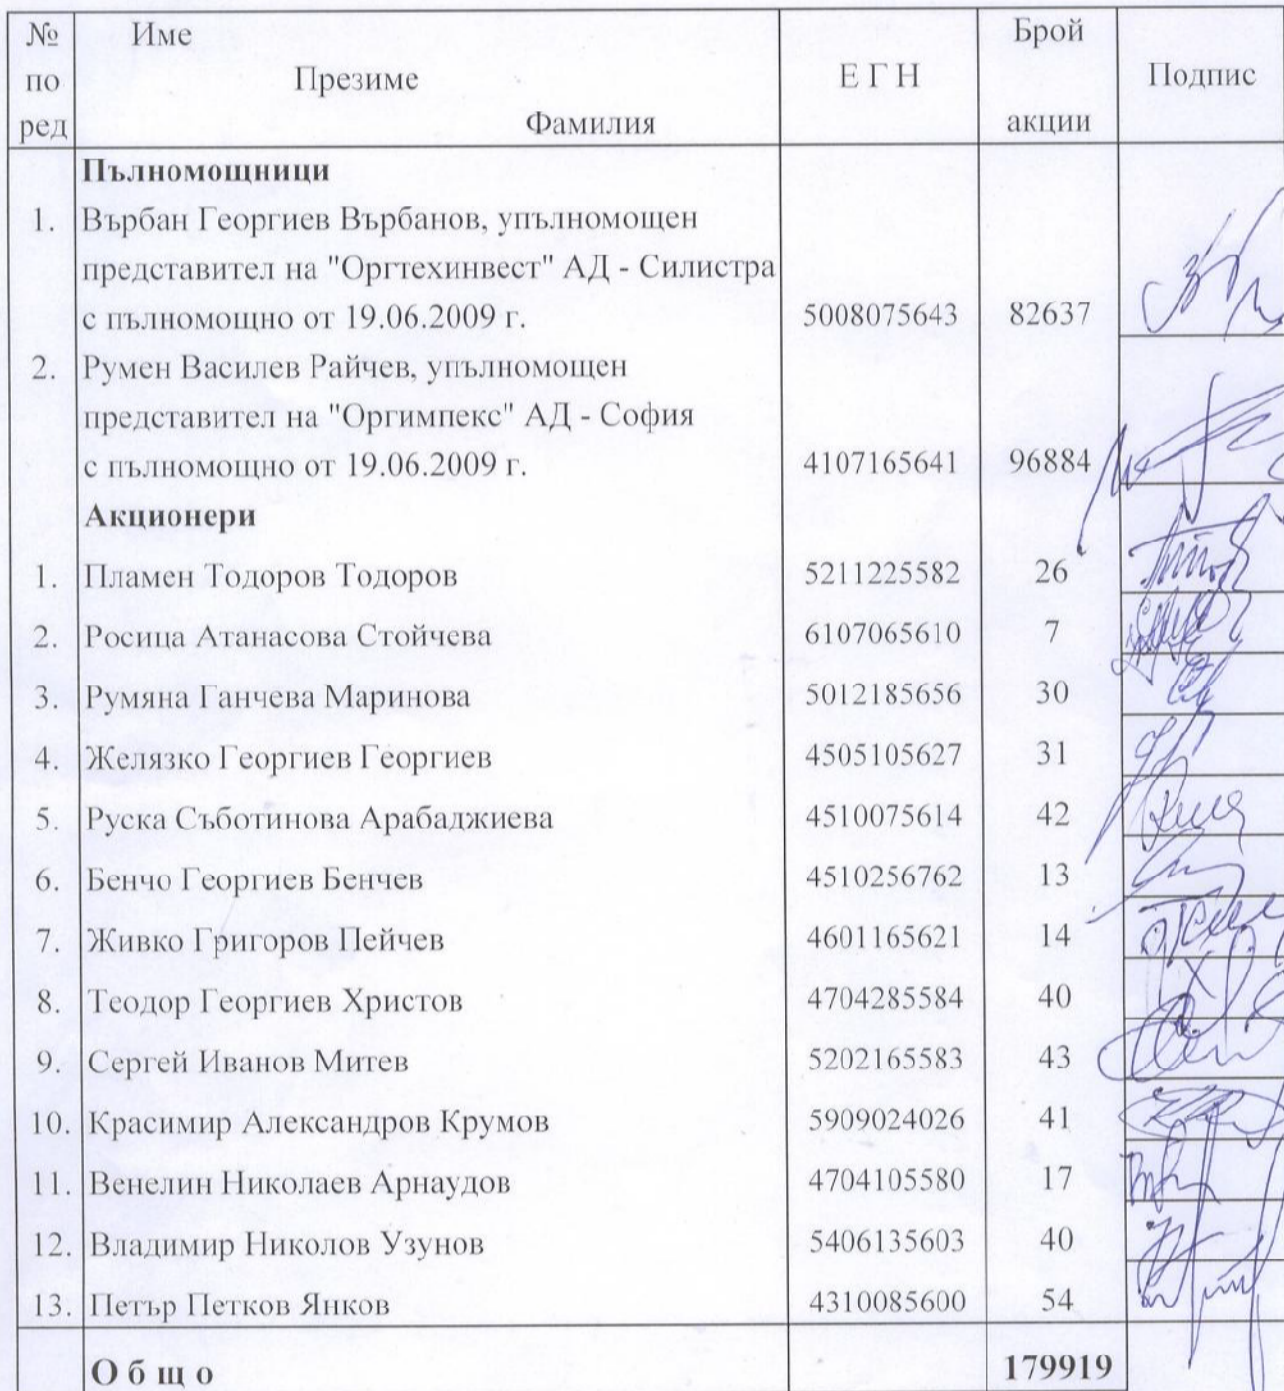 № Име Брой
по Презиме Е Г Н Подпис
ред Фамилия акции
Пълномощници
1. Върбан Георгиев Върбанов, упълномощен
представител на "Оргтехинвест" АД - Силистра
с пълномощно от 19.06.2009 г. 5008075643 82637
2. Румен Василев Райчев, упълномощен
представител на "Оргимпекс" АД - София
с пълномощно от 19.06.2009 г. 4107165641 96884
Акционери
1. Пламен Тодоров Тодоров 5211225582 26
2. Росица Атанасова Стойчева 6107065610 7
3. Румяна Ганчева Маринова 5012185656 30
4. Желязко Георгиев Георгиев 4505105627 31
5. Руска Съботинова Арабаджиева 4510075614 42
6. Бенчо Георгиев Бенчев 4510256762 13
7. Живко Григоров Пейчев 4601165621 14
8. Теодор Георгиев Христов 4704285584 40
9. Сергей Иванов Митев 5202165583 43
10. Красимир Александров Крумов 5909024026 41
11. Венелин Николаев Арнаудов 4704105580 17
12. Владимир Николов Узунов 5406135603 40
13. Петър Петков Янков 4310085600 54
О б щ о 179919